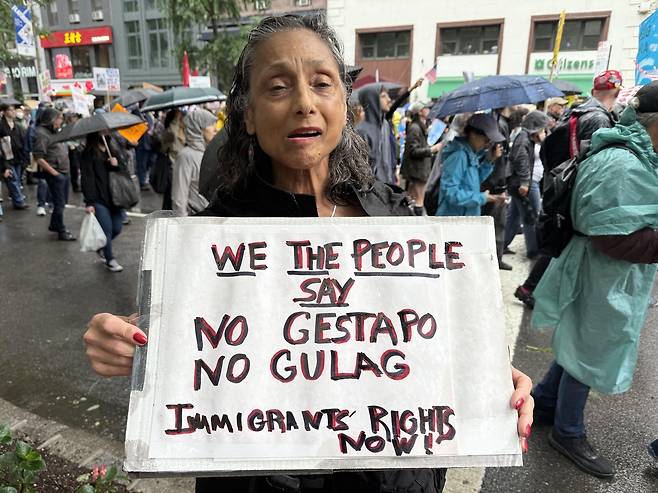 WE THE PEOPLE
SAY
NO GESTAPO
NO GULAG
IMMIGRANTS' RIGHTS
NOW!
Citizens